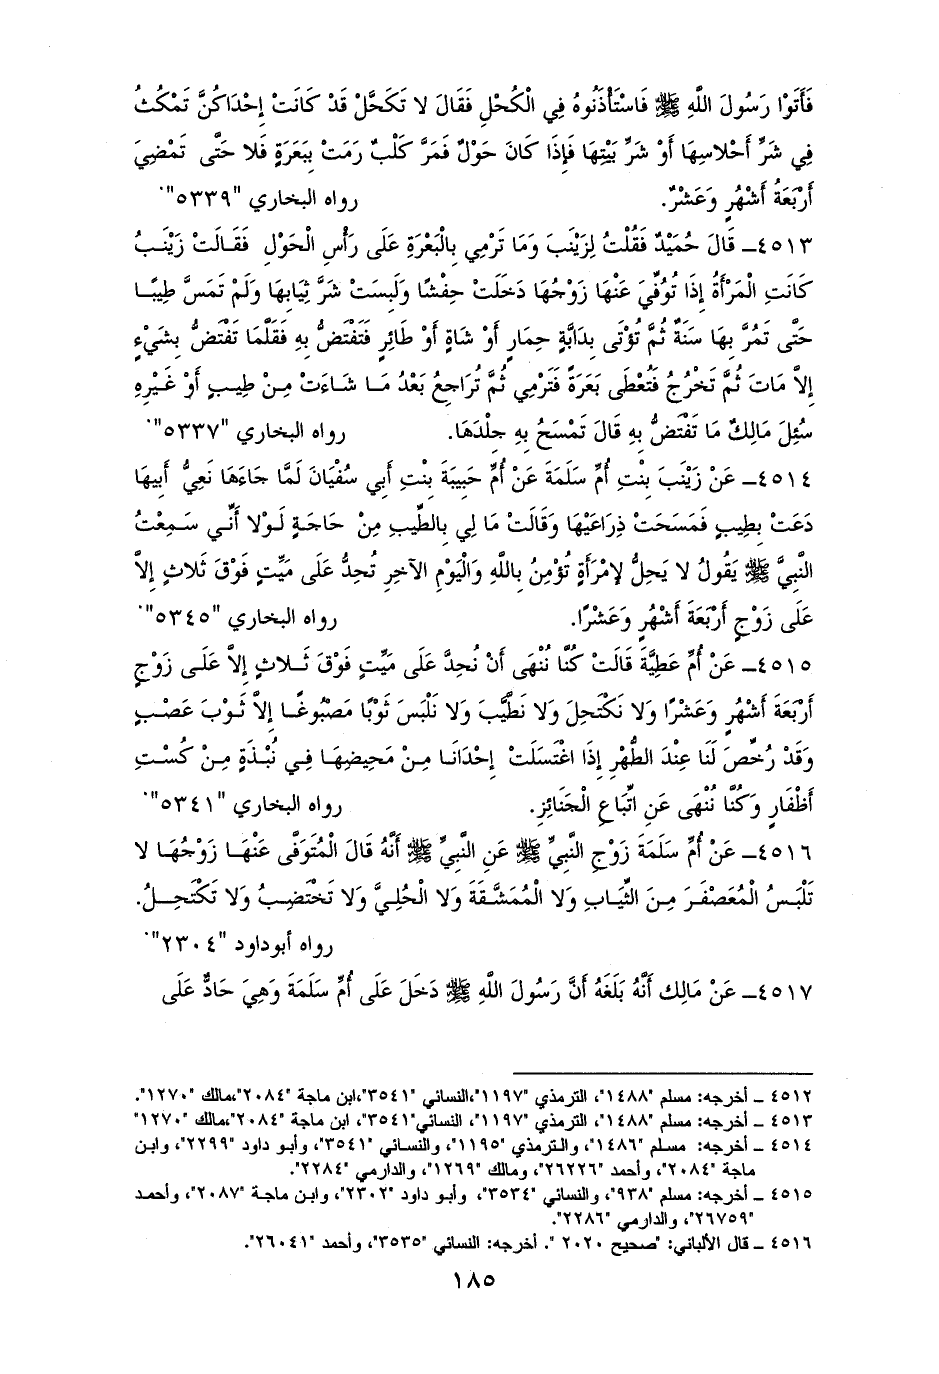 فَأَتَوْا رَسُولَ اللَّهِ ﷺ فَاسْتَأْذَنُوهُ فِي الْكُحْلِ فَقَالَ لا تَكَحَّلْ قَدْ كَانَتْ إِحْدَاكُنَّ تَمْكُثُ
فِي شَرِّ أَحْلاسِهَا أَوْ شَرِّ بَيْتِهَا فَإِذَا كَانَ حَوْلٌ فَمَرَّ كَلْبٌ رَمَتْ بِبَعَرَةٍ فَلا حَتَّى تَمْضِيَ
أَرْبَعَةُ أَشْهُرٍ وَعَشْرٌ. رواه البخاري "٥٣٣٩".
٤٥١٣ــ قَالَ حُمَيْدٌ فَقُلْتُ لِزَيْنَبَ وَمَا تَرْمِي بِالْبَعْرَةِ عَلَى رَأْسِ الْحَوْلِ فَقَالَتْ زَيْنَبُ
كَانَتِ الْمَرْأَةُ إِذَا تُوُفِّيَ عَنْهَا زَوْجُهَا دَخَلَتْ حِفْشًا وَلَبِسَتْ شَرَّ ثِيَابِهَا وَلَمْ تَمَسَّ طِيبًا
حَتَّى تَمُرَّ بِهَا سَنَةٌ ثُمَّ تُؤْتَى بِدَابَّةٍ حِمَارٍ أَوْ شَاةٍ أَوْ طَائِرٍ فَتَفْتَضُّ بِهِ فَقَلَّمَا تَفْتَضُّ بِشَيْءٍ
إِلاَّ مَاتَ ثُمَّ تَخْرُجُ فَتُعْطَى بَعَرَةً فَتَرْمِي ثُمَّ تُرَاجِعُ بَعْدُ مَا شَاءَتْ مِنْ طِيبٍ أَوْ غَيْرِهِ
سُئِلَ مَالِكٌ مَا تَفْتَضُّ بِهِ قَالَ تَمْسَحُ بِهِ جِلْدَهَا. رواه البخاري "٥٣٣٧".
٤٥١٤ــ عَنْ زَيْنَبَ بِنْتِ أُمِّ سَلَمَةَ عَنْ أُمِّ حَبِيبَةَ بِنْتِ أَبِي سُفْيَانَ لَمَّا جَاءَهَا نَعِيُّ أَبِيهَا
دَعَتْ بِطِيبٍ فَمَسَحَتْ ذِرَاعَيْهَا وَقَالَتْ مَا لِي بِالطِّيبِ مِنْ حَاجَةٍ لَوْلا أَنِّي سَمِعْتُ
النَّبِيَّ ﷺ يَقُولُ لا يَحِلُّ لِامْرَأَةٍ تُؤْمِنُ بِاللَّهِ وَالْيَوْمِ الآخِرِ تُحِدُّ عَلَى مَيِّتٍ فَوْقَ ثَلاثٍ إِلاَّ
عَلَى زَوْجٍ أَرْبَعَةَ أَشْهُرٍ وَعَشْرًا. رواه البخاري "٥٣٤٥".
٤٥١٥ــ عَنْ أُمِّ عَطِيَّةَ قَالَتْ كُنَّا نُنْهَى أَنْ نُحِدَّ عَلَى مَيِّتٍ فَوْقَ ثَلاثٍ إِلاَّ عَلَى زَوْجٍ
أَرْبَعَةَ أَشْهُرٍ وَعَشْرًا وَلا نَكْتَحِلَ وَلا نَطَّيَّبَ وَلا نَلْبَسَ ثَوْبًا مَصْبُوغًا إِلاَّ ثَوْبَ عَصْبٍ
وَقَدْ رُخِّصَ لَنَا عِنْدَ الطُّهْرِ إِذَا اغْتَسَلَتْ إِحْدَانَا مِنْ مَحِيضِهَا فِي نُبْذَةٍ مِنْ كُسْتِ
أَظْفَارٍ وَكُنَّا نُنْهَى عَنِ اتِّبَاعِ الْجَنَائِزِ. رواه البخاري "٥٣٤١".
٤٥١٦ــ عَنْ أُمِّ سَلَمَةَ زَوْجِ النَّبِيِّ ﷺ عَنِ النَّبِيِّ ﷺ أَنَّهُ قَالَ الْمُتَوَفَّى عَنْهَا زَوْجُهَا لا
تَلْبَسُ الْمُعَصْفَرَ مِنَ الثِّيَابِ وَلا الْمُمَشَّقَةَ وَلا الْحُلِيَّ وَلا تَخْتَضِبُ وَلا تَكْتَحِلُ.
رواه أبوداود "٢٣٠٤".
٤٥١٧ــ عَنْ مَالِك أَنَّهُ بَلَغَهُ أَنَّ رَسُولَ اللَّهِ ﷺ دَخَلَ عَلَى أُمِّ سَلَمَةَ وَهِيَ حَادٌّ عَلَى
٤٥١٢ ــ أخرجه: مسلم "١٤٨٨"، الترمذي "١١٩٧"،النسائي "٣٥٤١"،ابن ماجة "٢٠٨٤"،مالك "١٢٧٠".
٤٥١٣ ــ أخرجه: مسلم "١٤٨٨"، الترمذي "١١٩٧"، النسائي"٣٥٤١"، ابن ماجة "٢٠٨٤"،مالك "١٢٧٠"
٤٥١٤ ــ أخرجه: مسلم "١٤٨٦"، والترمذي "١١٩٥"، والنسائي "٣٥٤١"، وأبو داود "٢٢٩٩"، وابن
ماجة "٢٠٨٤"، وأحمد "٢٦٢٢٦"، ومالك "١٢٦٩"، والدارمي "٢٢٨٤".
٤٥١٥ ــ أخرجه: مسلم "٩٣٨"، والنسائي "٣٥٣٤"، وأبو داود "٢٣٠٢"، وابن ماجة "٢٠٨٧"، وأحمد
"٢٦٧٥٩"، والدارمي "٢٢٨٦".
٤٥١٦ ــ قال الألباني: "صحيح ٢٠٢٠ ". أخرجه: النسائي "٣٥٣٥"، وأحمد "٢٦٠٤١".
١٨٥